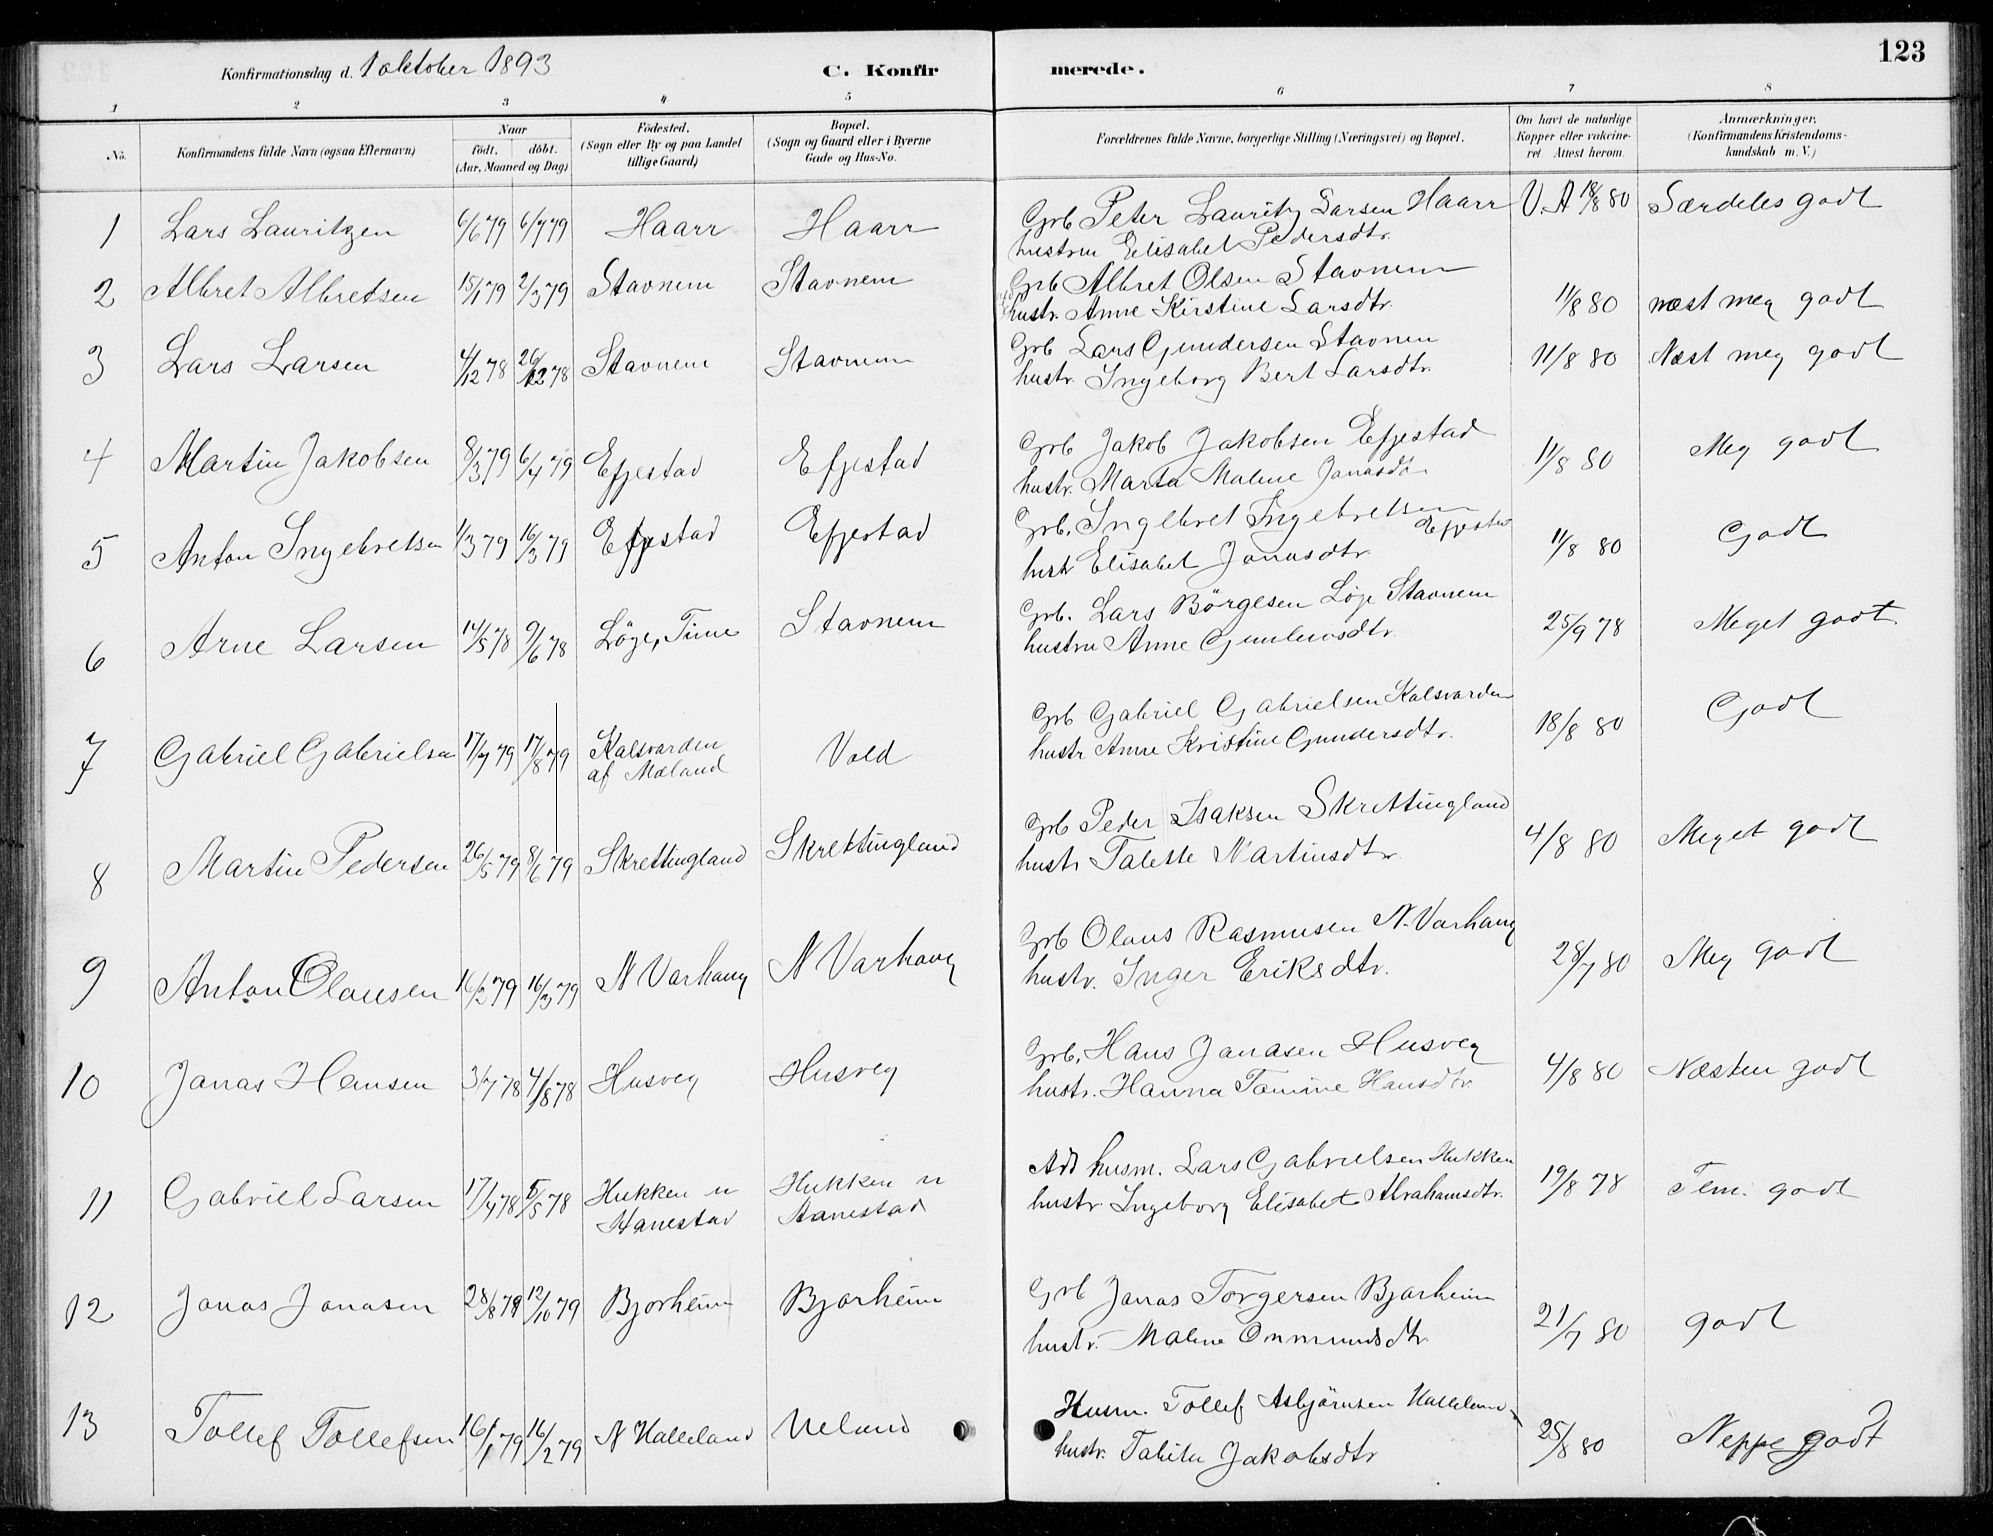 123
Konfirmationsdag d. 1 oktober 1893 C. Konfirmerede.
1 2 3 4 5 6 7 8
No. Konfirmandens fulde Navn (ogsaa Efternavn) Naar födt. döbt. (Aar, Maaned og Dag) Födested. (Sogn eller By og paa Landet tillige Gaard) Bopæl. (Sogn og Gaard eller i Byerne Gade og Hus-No. Forældrenes fulde Navne, borgerlige Stilling (Næringsvei) og Bopæl. Om havt de naturlige Kopper eller vakcineret. Attest herom. Anmærkninger. (Konfirmandens Kristendomskundskab m. V.)
1 Lars Lauritzen 6/6 79 6/7 79 Haarr Haarr Grb Peter Lauritz Larsen Haarr V. A 18/8 80 Særdeles godt
hustru Elisabet Pedersdtr.
2 Albret Albretsen 15/1 79 2/3 79 Stavnem Stavnem Grb Albret Olsen Stavnem 11/8 80 næst meg godt
hustr. Anne Kirstine Larsdtr.
3 Lars Larsen 4/12 78 26/12 78 Stavnem Stavnem Grb Lars Gundersen Stavnem 11/8 80 Næst meg godt
hustr. Ingeborg Bert Larsdtr.
4 Martin Jakobsen 8/3 79 6/4 79 Efjestad Efjestad Grb Jakob Jakobsen Efjestad 11/8 80 Meg godt
hustr. Marta Maline Jonasdtr
5 Anton Ingebretsen 1/3 79 16/3 79 Efjestad Efjestad Grb. Ingebret Ingebretsen Efjestad 11/8 80 Godt
hustr Elisabet Jonasdtr.
6 Arne Larsen 14/5 78 9/6 78 Löge, Time Stavnem Grb. Lars Börgesen Löge Stavnem 25/9 78 Meget godt
hustru Anne Gunleivsdtr.
7 Gabriel Gabrielsen 17/7 79 17/8 79 Kalsvarden af Mæland Vold Grb Gabriel Gabrielsen Kalsvarden 18/8 80 Godt
hustr Anne Kristine Gundersdtr.
8 Martin Pedersen 26/5 79 8/6 79 Skrettingland Skrettingland Grb Peder Isaksen Skrettingland 4/8 80 Meget godt
hustr Talette Martinsdtr.
9 Anton Olausen 16/2 79 16/3 79 N Varhaug N Varhaug Grb Olaus Rasmusen N. Varhaug 28/7 80 Meg godt
hustr. Inger Eriksdtr.
10 Jonas Hansen 3/7 78 4/8 78 Husveg Husveg Grb. Hans Jonasen Husveg 4/8 80 Næsten godt
hustr. Hanna Tomine Hansdtr
11 Gabriel Larsen 17/4 78 5/5 78 Hukken u Aanestad Hukken u Aanestad Add husm. Lars Gabrielsen Hukken 19/8 78 Tem. godt
hustr Ingeborg Elisabet Abrahamsdtr.
12 Jonas Jonasen 28/8 79 12/10 79 Bjorheim Bjorheim Grb Jonas Torgersen Bjorheim 21/7 80 godt
hustr. Maline Onmundsdtr.
13 Tollef Tollefsen 16/1 79 16/2 79 N Halleland Ueland Husm. Tollef Asbjörnsen Halleland 25/8 80 Neppe godt
hustr. Tabita Jakobsdtr